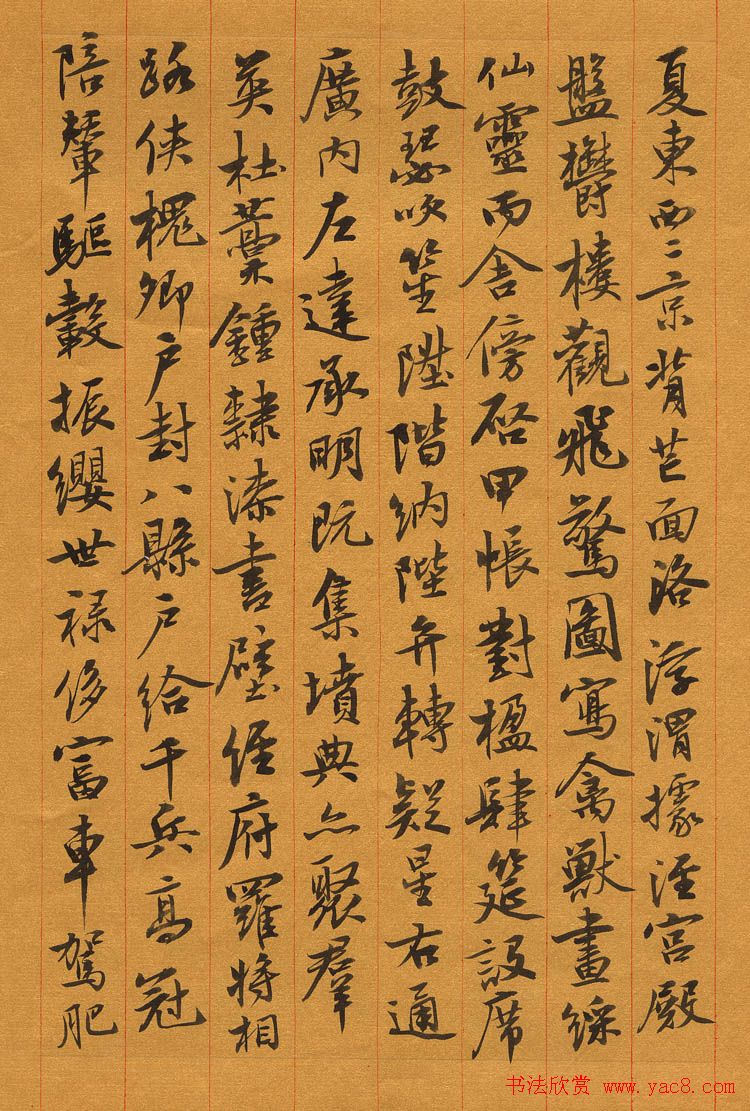 夏東西二京背芒面洛浮渭據涇宮殿
盤鬱樓觀飛驚圖寫禽獸畫綵
仙靈丙舍傍啓甲帳對楹肆筵設席
鼓瑟吹笙陞階納陛弁轉疑星右通
廣內左達承明既集墳典亦聚群
英杜藁鍾隸漆書壁經府羅將相
路俠槐卿戶封八縣戶給千兵高冠
陪輦驅轂振纓世祿侈富車駕肥
书法欣赏 www.yac8.com